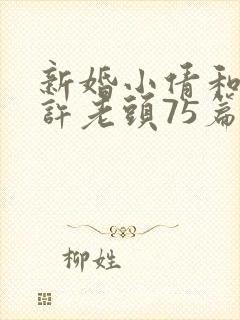 新婚小倩和
許老頭75篇
柳姓